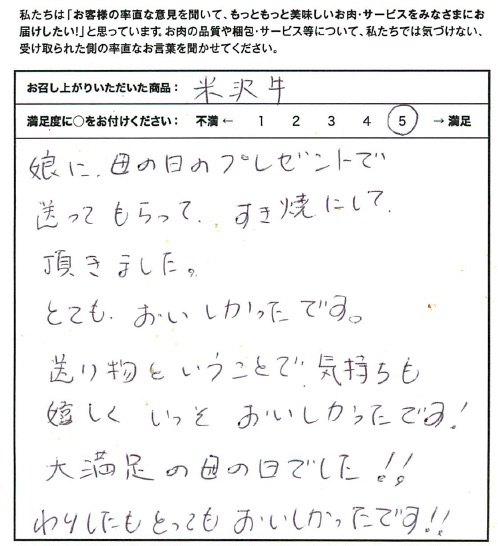 私たちは「お客様の率直な意見を聞いて、もっともっと美味しいお肉・サービスをみなさまにお
届けしたい!」と思っています。お肉の品質や梱包・サービス等について、私たちでは気づけない、
受け取られた側の率直なお言葉を聞かせてください。
お召し上がりいただいた商品: 米沢牛
満足度に○をお付けください: 不満 ← 1 2 3 4 5 → 満足
娘に、母の日のプレゼントで
送ってもらって、すき焼にして
頂きました。
とても、おいしかったです。
送り物ということで、気持ちも
嬉しく いっそ おいしかったです!
大満足の母の日でした!!
わりしたもとってもおいしかったです!!